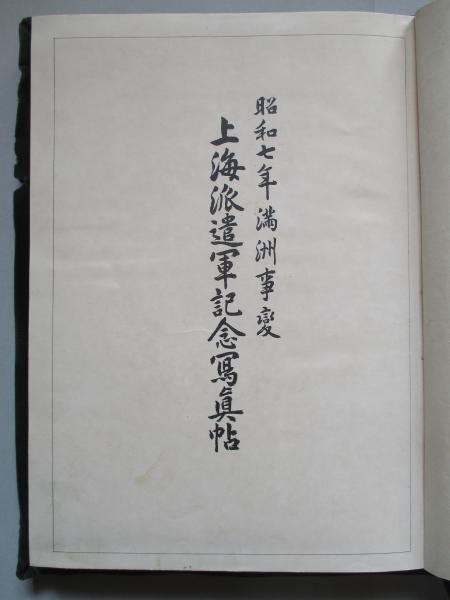 昭和七年満洲事變
上海派遣軍記念寫眞帖